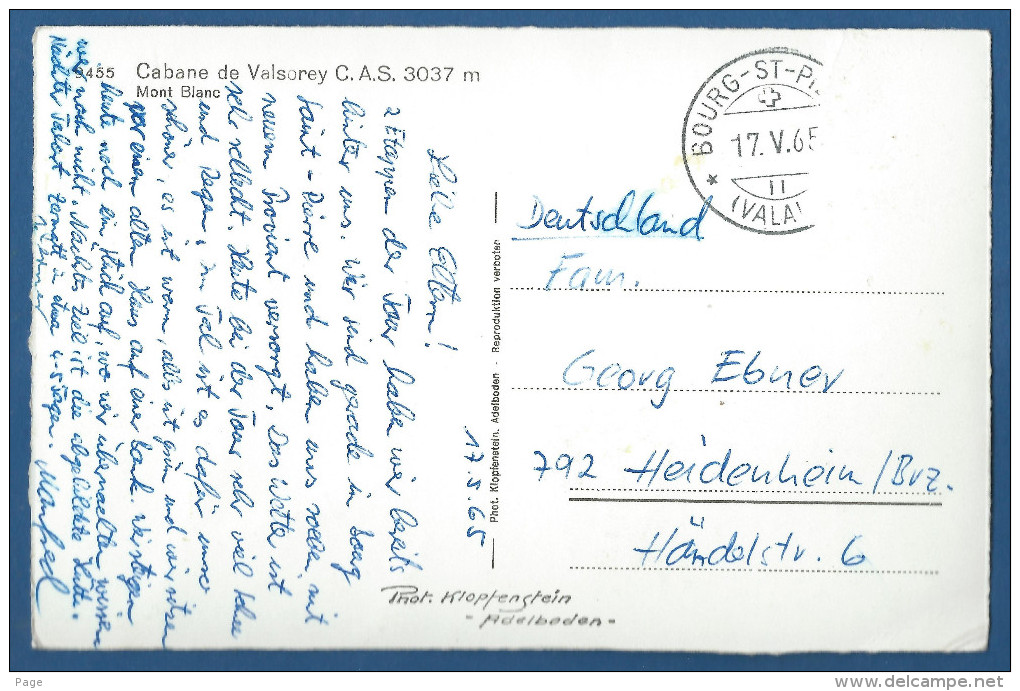 3455 Cabane de Valsorey C.A.S. 3037 m
Mont Blanc
BOURG-ST-PI
17.V.65
11
(VALA
17.5.65
Liebe Eltern!
2 Etappen der Tour haben wir bereits
hinter uns. Wir sind gerade in Bourg
Saint-Pierre und haben uns soeben mit
neuem Proviant versorgt. Das Wetter ist
sehr schlecht. Heute bei der Tour sehr viel Schnee
und Regen, im Tal ist es dafür umso
schöner, es ist warm, alles ist grün und wir sitzen
vor einem alten Haus auf einer Bank. Wir steigen
heute noch ein Stück auf, wo wir übernachten wissen
wir noch nicht. Nächstes Ziel ist die abgebildete Hütte.
Nächster Talort Zermatt in etwa 4-5 Tagen.
Manfred
Deutschland
Fam.
Georg Ebner
792 Heidenheim/Brz.
Händelstr. 6
Phot. Klopfenstein, Adelboden - Reproduktion verboten
Phot. Klopfenstein
- Adelboden -
Page
www.delcampe.net